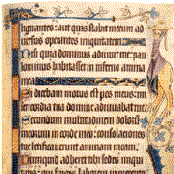 lignantes: aut quis stabit mecum ad
uersus operantes iniquitatem
Nisi quia dominus adiuuit me: pau
lominus habitasset in inferno anima
mea
Si dicebam motus est pes meus: mi
sericordia tua domine adiuuabat me
Secundum multitudinem dolorum
meorum in corde meo: consolationes
tue letificauerunt animam meam
Numquid adheret tibi sedes iniqui
tatis: qui fingis laborem in